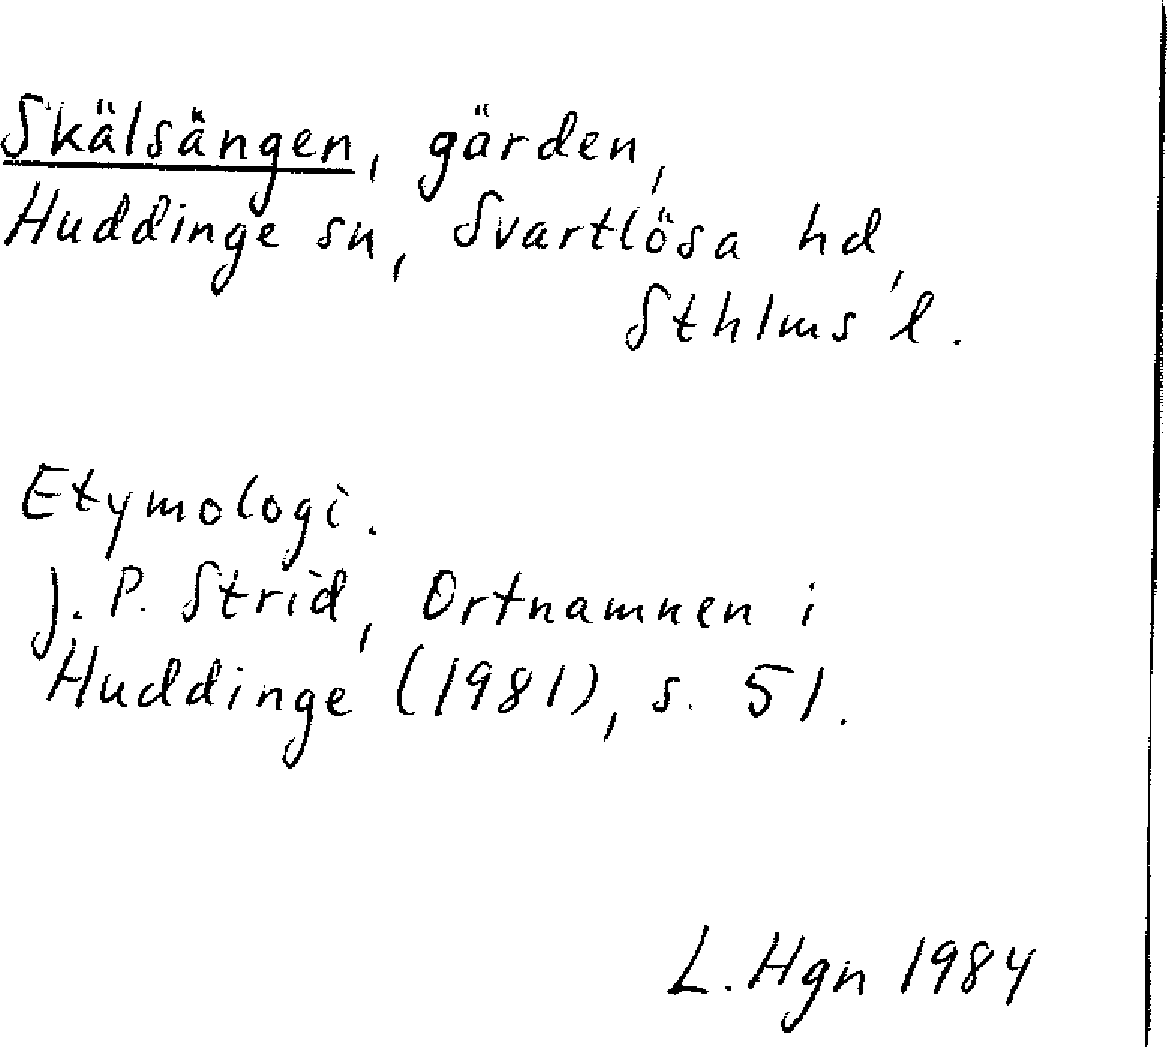 Skälsängen, gärden,
Huddinge sn, Svartlösa hd,
Sthlms l.
Etymologi.
J. P. Strid, Ortnamnen i
Huddinge (1981), s. 51.
L. Hgn 1984